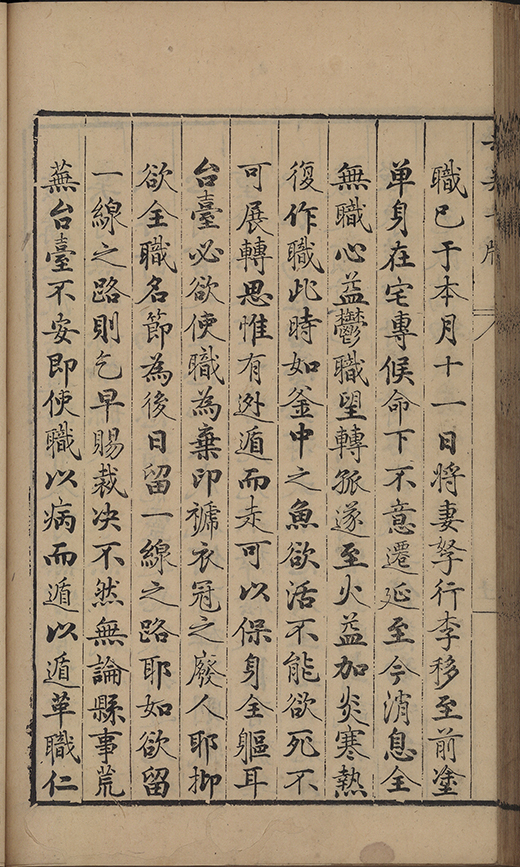 職已于本月十一日將妻孥行李移至前塗
單身在宅專候命下不意遷延至今消息全
無職心益鬱職望轉孤遂至火益加炎寒熱
復作職此時如釜中之魚欲活不能欲死不
可展轉思惟有逊遁而走可以保身全軀耳
台臺必欲使職為棄印褫衣冠之廢人耶抑
欲全職名節為後日留一線之路耶如欲留
一線之路則乞早賜裁决不然無論縣事荒
蕪台臺不安即使職以病而遁以遁革職仁